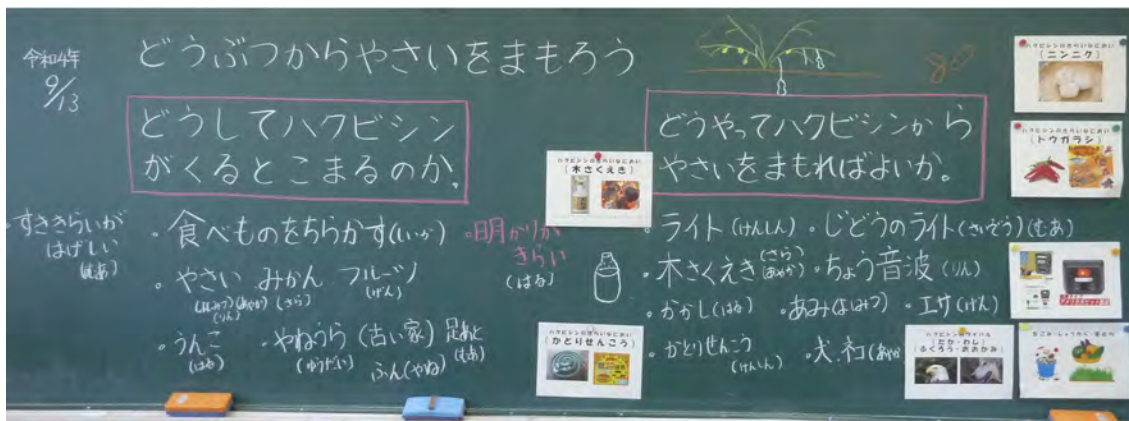 令和4年
9/13
どうぶつからやさいをまもろう
どうしてハクビシン
がくるとこまるのか。
・すききらいが
はげしい
(むあ)
・食べものをちらかす
・やさい みかん フルーツ
(あやか)(さら) (げん)
(りん)
・うんこ
(はる)
・やねうら(古い家) 足あと
(ゆうだい) (むあ)
ふん(やね)
・明かりが
きらい
(はる)
ハクビシンのきらいなにおい
(木さくえき)
ハクビシンのきらいなにおい
(かとりせんこう)
どうやってハクビシンから
やさいをまもればよいか。
・ライト(けんしん)・じどうのライト(むあ)
・木さくえき(さら)(あやか)・ちょう音波(りん)
・かかし(はる) ・あみ ・エサ(げん)
・かとりせんこう ・犬、ネコ
(けんしん)
ハクビシンのきらいなにおい
(ニンニク)
ハクビシンのきらいなにおい
(トウガラシ)
ハクビシンのライバル
(たか・わし)
ふくろう・おおかみ